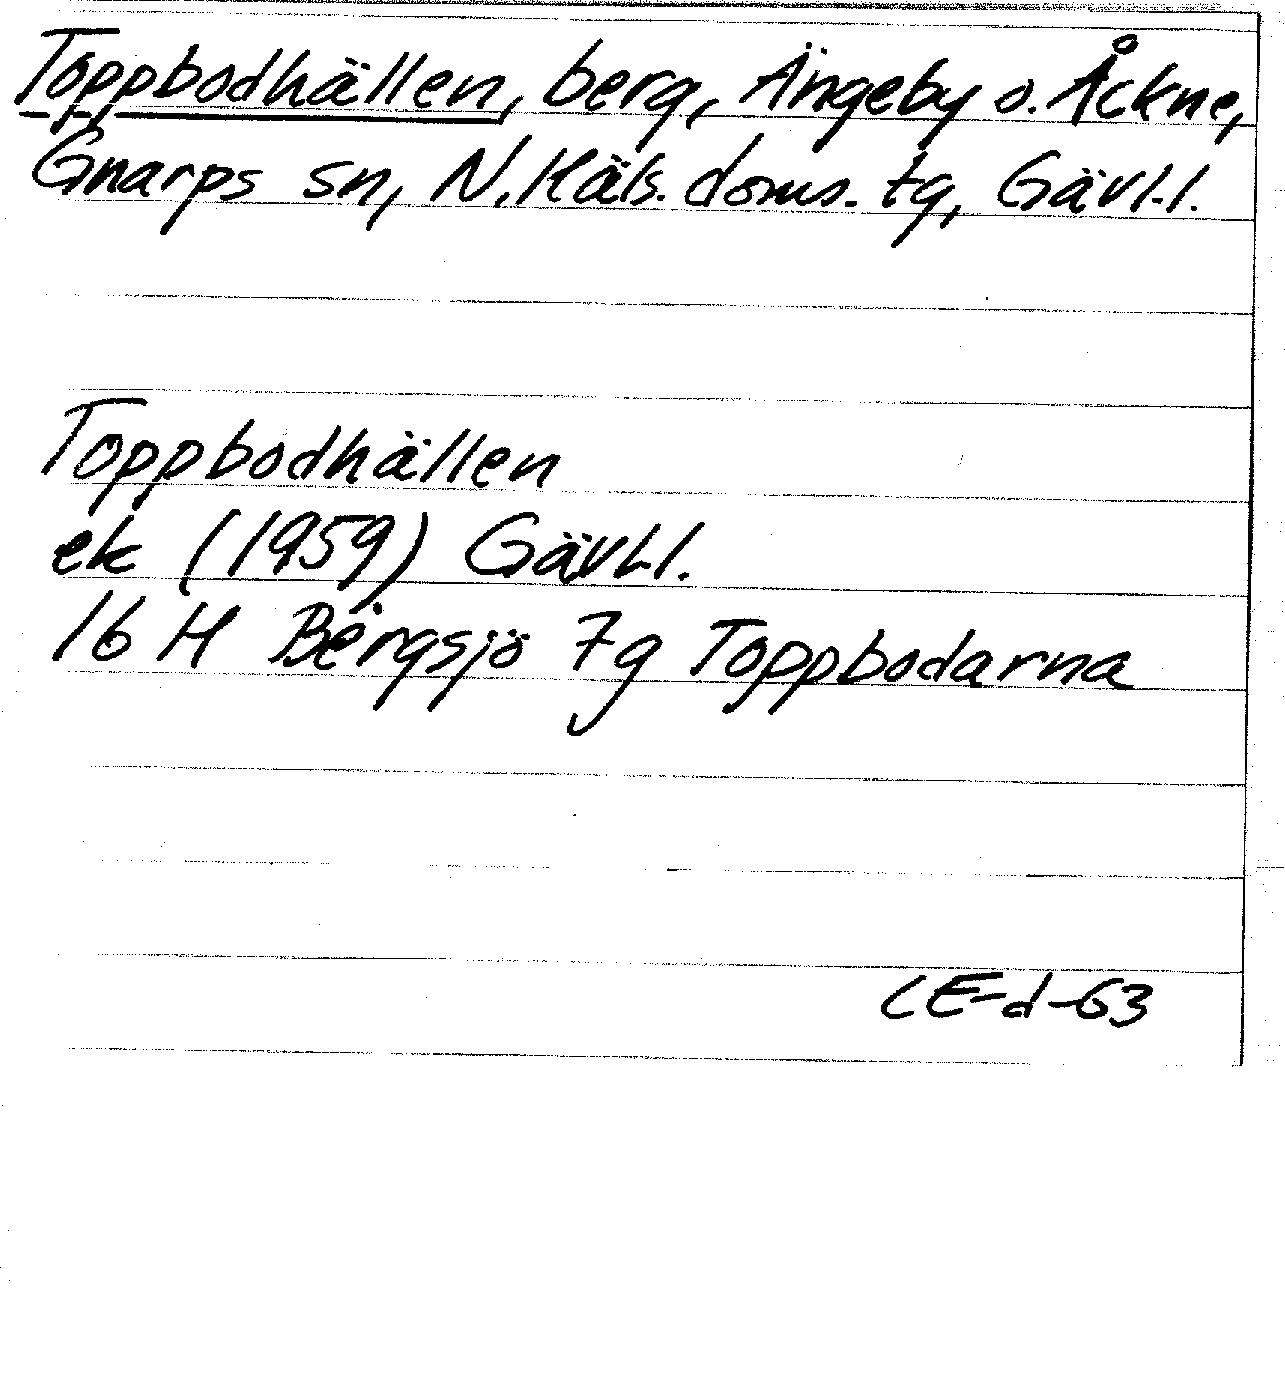 Toppbodhällen, berg, Ängeby o. Åckne,
Gnarps sn, N. Häls. doms. tg, Gävl.l.
Toppbodhällen
ek (1959) Gävl.l.
16 H Bergsjö 7g Toppbodarna
CE-d-63